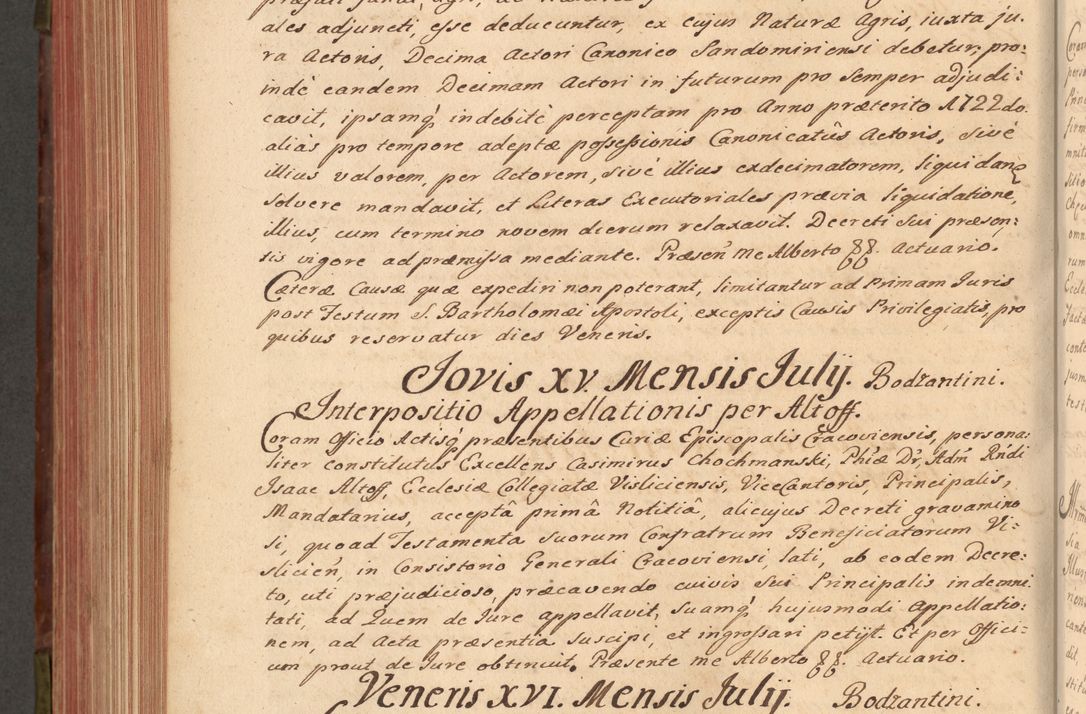 ales adjuncti, esse deducuntur, ex cujus Naturæ Agris, iuxta ju:
ra Actoris, Decima Actori Canonico Sandomiriensi debetur; pro:
indè eandem Decimam Actori in futurum pro semper adjudi:
cavit, ipsamq́ indebitè perceptam pro Anno præterito 1722do
aliàs pro tempore adeptæ possessionis Canonicatûs Actoris, sivè
illius valorem, per Actorem, sivè illius exdecimatorem, liquidanđ
solvere mandavit, et Literas Executoriales prævia liquidatione,
illius, cum termino novem dierum relaxavit. Decreti sui præsen:
tis vigore ad præmissa mediante. Præseñ me Alberto
Actuario.
Cæteræ Causæ quæ expediri non poterant, limitantur ad Primam Juris
post Festum S. Bartholomæi Apostoli, exceptis Causis Privilegiatis, pro
quibus reservatur dies Veneris.
Jovis XV. Mensis Julij. Bodzantini.
Interpositio Appellationis per Altoff.
Coram Officio Actisq́ præsentibus Curiæ Episcopalis Cracoviensis, persona:
liter constitutus Excellens Casimirus Chochmanski, Phiæ Dr, Adm̃ Rñdi
Isaac Altoff, Ecclesiæ Collegiatæ Visliciensis, ViceCantoris, Principalis,
Mandatarius, acceptâ primâ Notitiâ, alicujus Decreti gravamino
si, quoad Testamenta suorum Confratrum Beneficiatorum Vi:
slicień, in Consistorio Generali Cracoviensi lati, ab eodem Decre:
to, uti præjudicioso, præcavendo cuivis sui Principalis indemni
tati, ad Quem de Jure appellavit, suamq́ hujusmodi Appellatio:
nem, ad Acta præsentia suscipi, et ingrossari petijt. Et per Offici:
um prout de Jure obtinuit. Præsente me Alberto
Actuario.
Veneris XVI. Mensis Julij. Bodzantini.